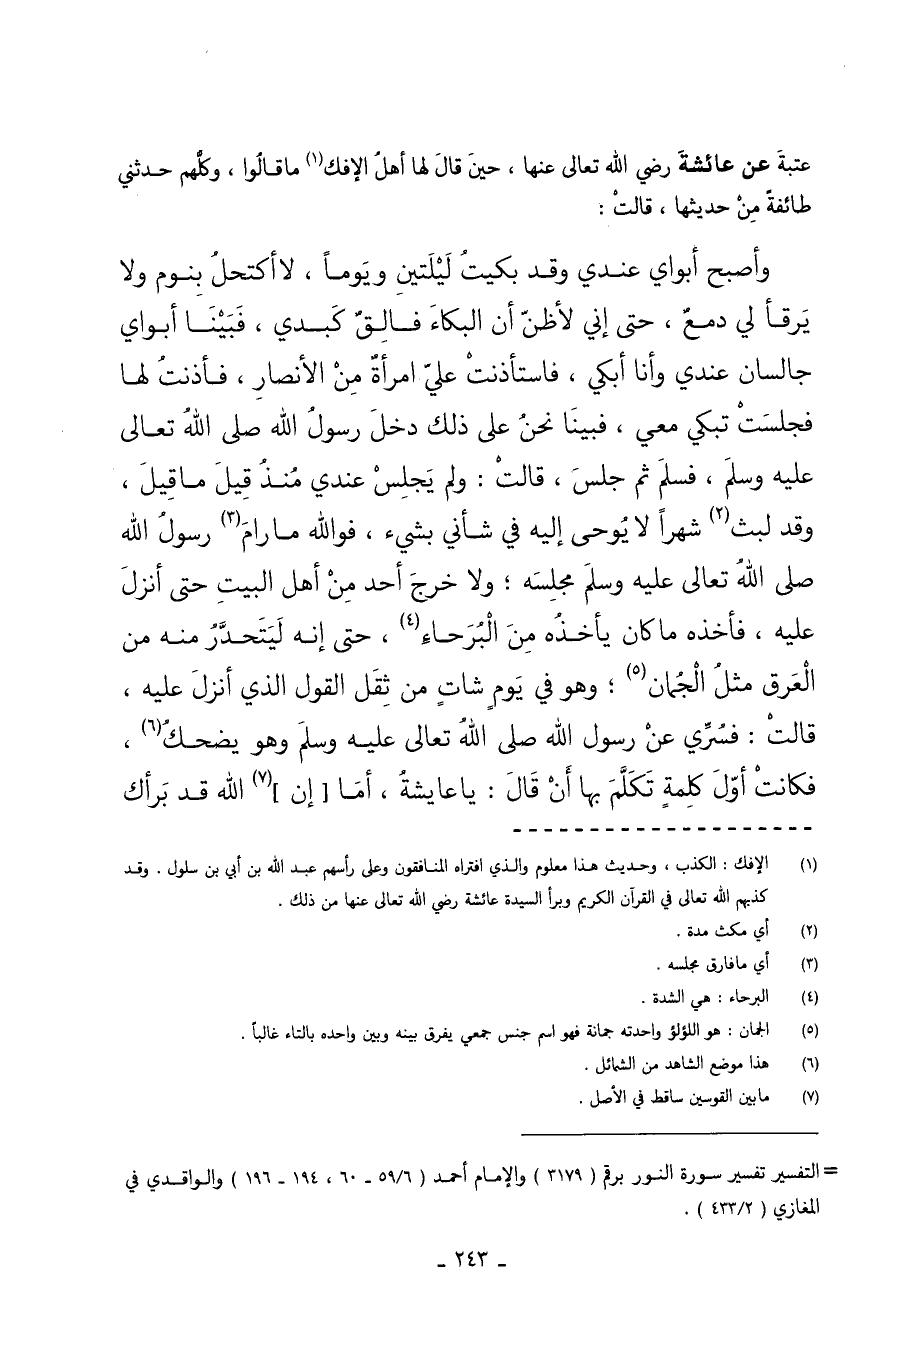 عتبةَ عن عائشةَ رضي الله تعالى عنها ، حينَ قالَ لها أهلُ الإفك(١) ماقـالُوا ، وكلُّهم حـدثني
طائفةً مِنْ حديثها ، قالتْ :
وأصبح أبواي عنـدي وقـد بكيتُ لَيْلَتَينِ ويَومـاً ، لاأكتحلُ بنـوم ولا
يَرقـأ لي دمـعٌ ، حتى إني لأظنّ أن البكاءَ فـالـقٌ كَبـدي ، فَبَيْنَـا أبـواي
جالسان عندي وأنا أبكي ، فاستأذنتْ عليّ امرأةٌ مِنْ الأنصار ، فـأذنتُ لهـا
فجلسَتْ تبكي معي ، فبينَا نحنُ على ذلك دخلَ رسولُ الله صلى اللهُ تعـالى
عليه وسلَم ، فسلَم ثم جلسَ ، قالتْ : ولم يَجلِسْ عندي مُنـذُ قِيلَ مـاقِيلَ ،
وقد لبث(٢) شهراً لا يُوحى إليه في شـأني بشيء ، فوالله مـارامَ(٣) رسولُ الله
صلى اللهُ تعالى عليه وسلَم مجلِسَه ؛ ولا خرجَ أحد مِنْ أهل البيتِ حتى أنزلَ
عليه ، فأخذه ماكان يأخـذُه مِنَ الْبُرَحـاء(٤) ، حتى إنـه لَيَتَحـدَّرُ منـه من
الْعَرق مثلُ الْجُمان(٥) ؛ وهو في يَومٍ شاتٍ من ثِقَل القول الذي أنزلَ عليه ،
قالتْ : فسُرِّي عنْ رسول الله صلى اللهُ تعالى عليـه وسلَم وهو يضحـكُ(٦) ،
فكانتْ أوّلَ كلِمةٍ تَكَلَّمَ بها أَنْ قَالَ : ياعايشةُ ، أمَـا [ إن ](٧) الله قـد بَرأك
(١) الإفك : الكذب ، وحديث هـذا معلوم والذي افتراه المنـافقون وعلى رأسهم عبـد الله بن أبي بن سلول . وقـد
كذبهم الله تعالى في القرآن الكريم وبرأ السيدة عائشة رضي الله تعالى عنها من ذلك .
(٢) أي مكث مدة .
(٣) أي مافارق مجلسه .
(٤) البرحاء : هي الشدة .
(٥) الجمان : هو اللؤلؤ واحدته جمانة فهو اسم جنس جمعي يفرق بينه وبين واحده بالتاء غالباً .
(٦) هذا موضع الشاهد من الشمائل .
(٧) مابين القوسين ساقط في الأصل .
= التفسير تفسير سـورة النـور برقم ( ٣١٧٩ ) والإمـام أحمـد ( ٥٩/٦ ـ ٦٠ ، ١٩٤ ـ ١٩٦ ) والـواقـدي في
المغازي ( ٤٣٣/٢ ) .
ـ ٢٤٣ ـ